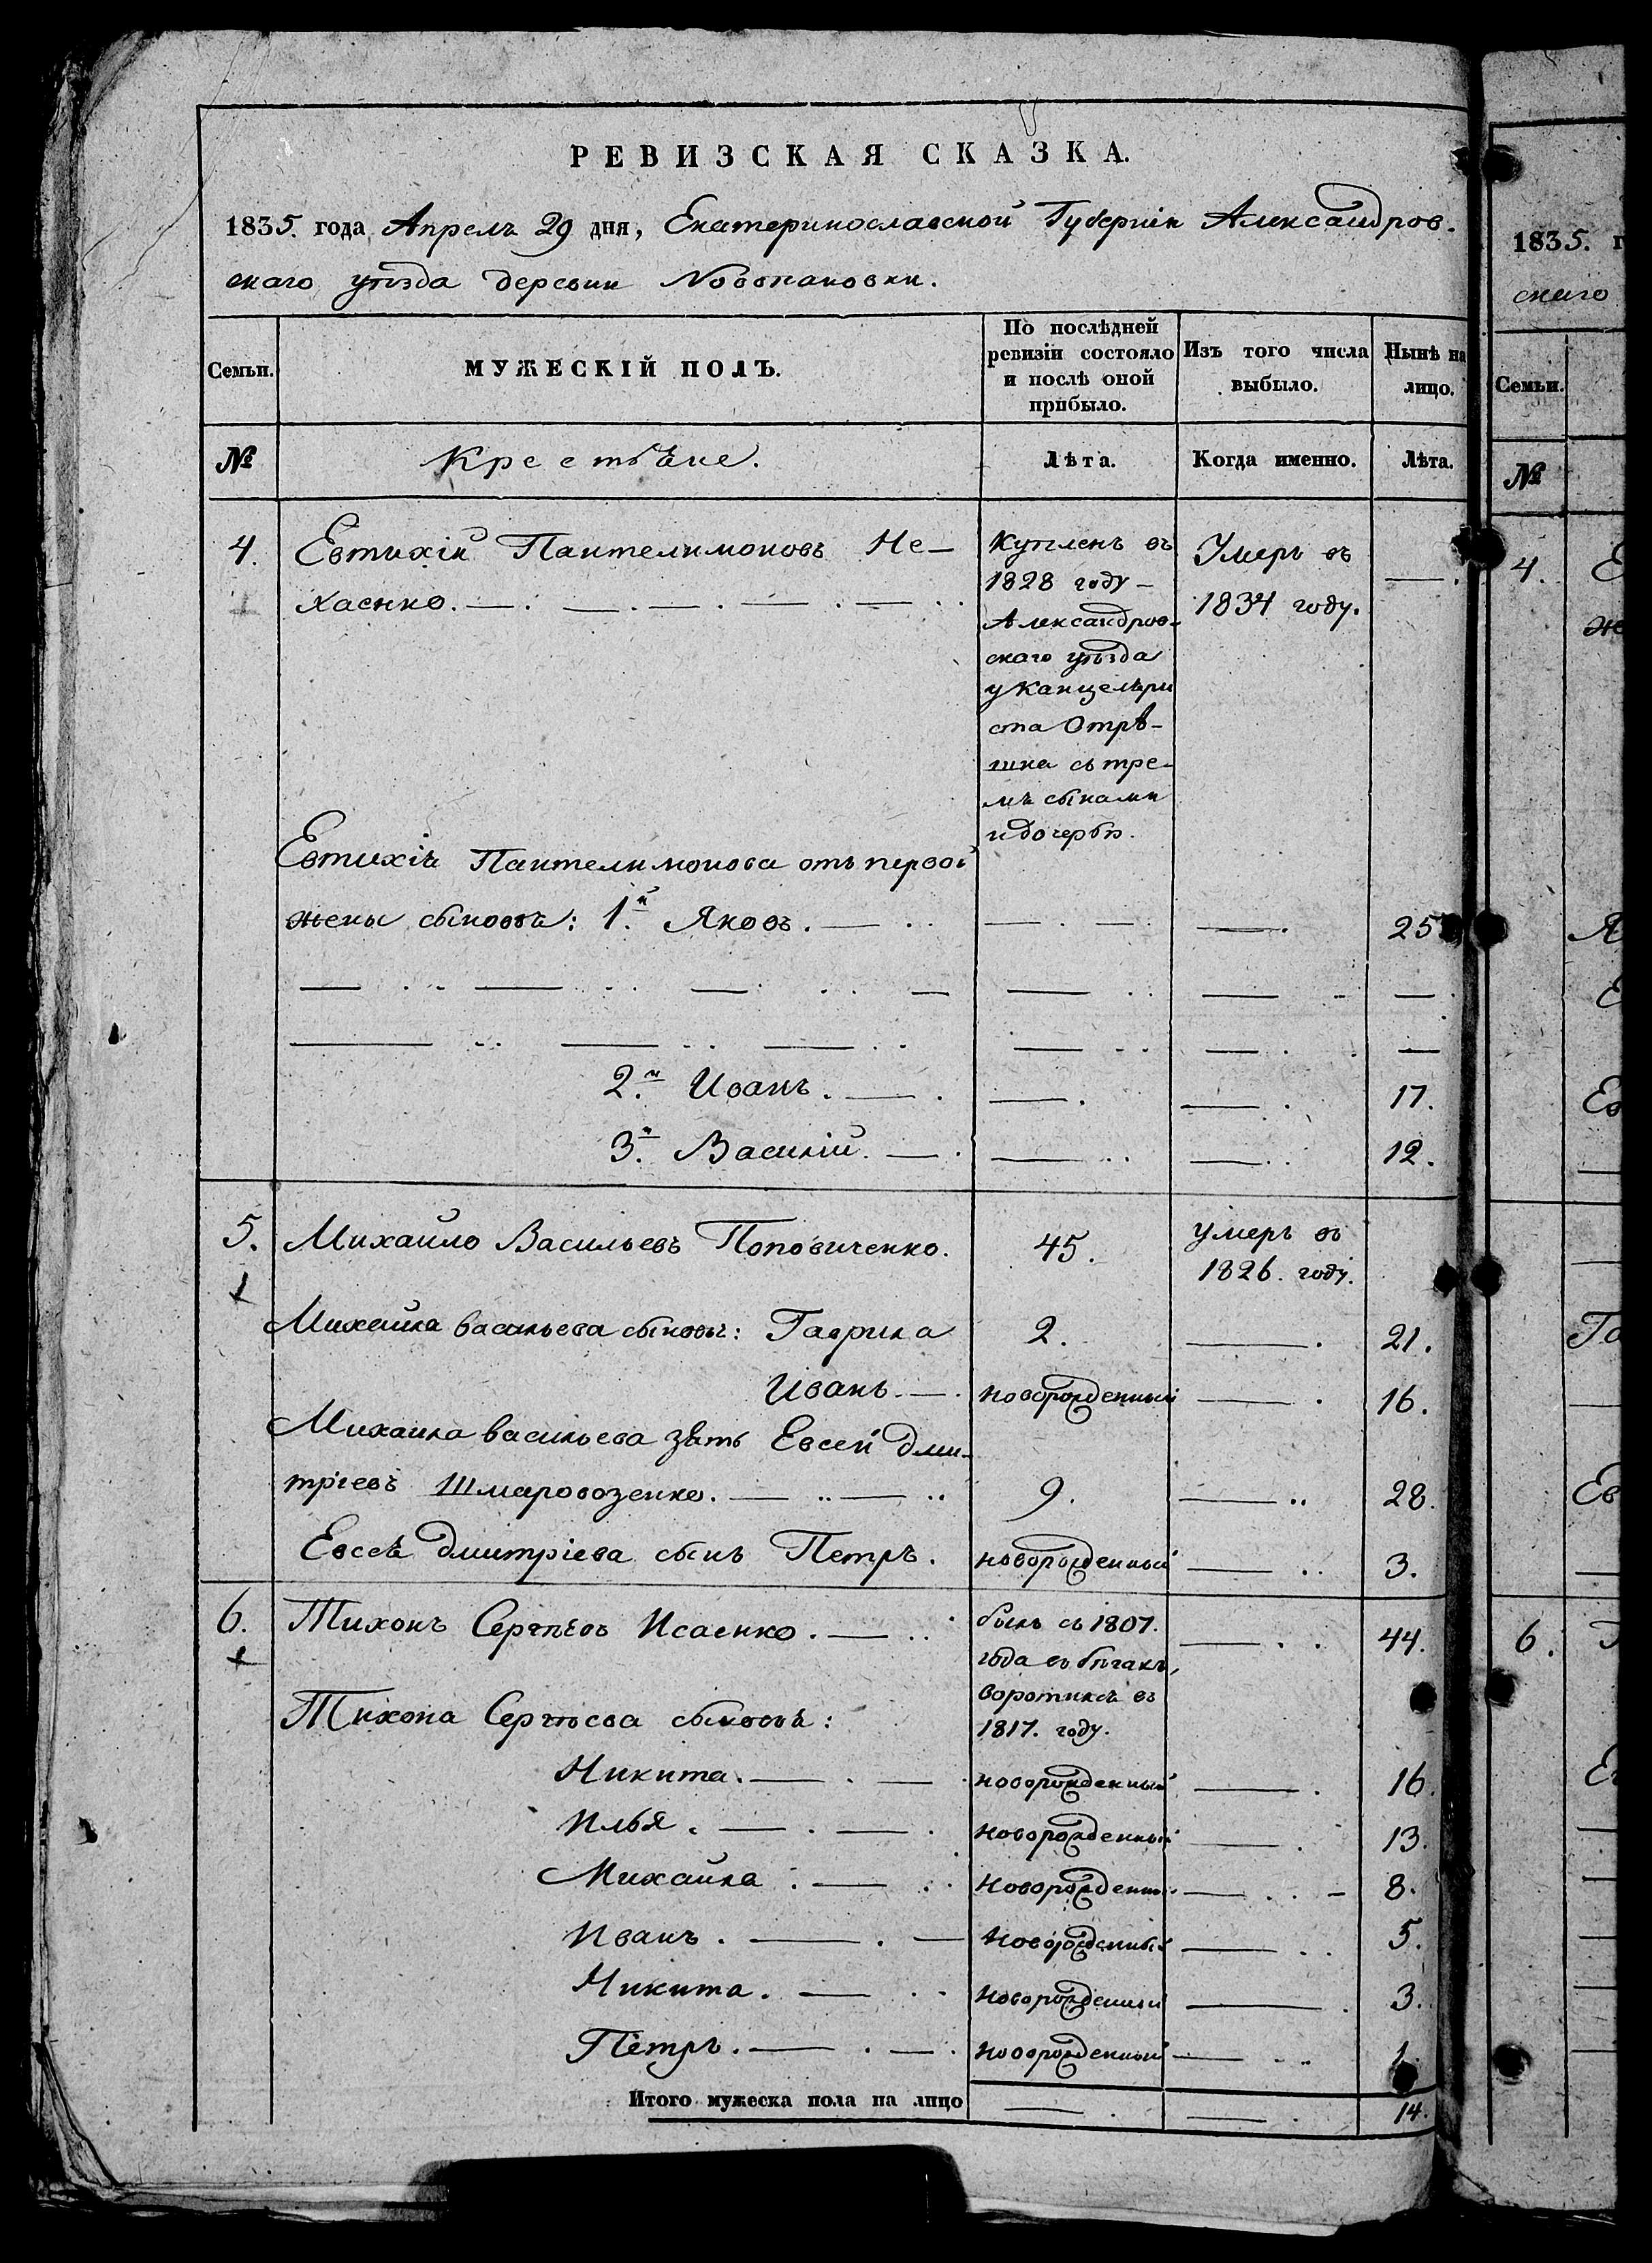 РЕВИЗСКАЯ СКАЗКА.
1835. года Апрелѧ 29 дня, Екатеринославской Губерніи Александров-
скаго уѣзда деревни Новопановки.
Семьи.
МУЖЕСКІЙ ПОЛЪ.
По послѣдней
ревизіи состояло
и послѣ оной
прибыло.
Изъ того числа
выбыло.
Нынѣ на
лицо.
№
Крестьѧне.
Лѣта.
Когда именно.
Лѣта.
4. Евтихій Пантелимоновъ Не-
хаенко.
Купленъ въ
1828 году
Александров-
скаго уѣзда
у Канцелѧри
ста Отрѣ-
шка съ тре-
мѧ сынами
и дочерью.
Умеръ въ
1834 году.
Евтихіѧ Пантелимонова отъ первой
жены сыновьѧ: 1й Яковъ. 25
2й Иванъ. 17.
3й Василій. 12.
5. Михайло Васильевъ Поповиченко. 45. умеръ въ
1826. году.
Михайла васильева сыновьѧ: Гаврила 2. 21.
Иванъ. новорожденный 16.
Михайла васильева зѧть Евсей дми-
тріевъ Шмаровозенко. 9. 28.
Евсеѧ дмитріева сынъ Петръ. новорожденный 3.
6. Тихонъ Сергѣевъ Исаенко. 44.
былъ съ 1807.
года въ бѣгахъ,
воротилсѧ въ
1817. году.
Тихона Сергѣева сыновьѧ:
Никита. новорожденный 16.
Илья. новорожденный 13.
Михайла новорожденный 8.
Иванъ. новорожденный 5.
Никита. новорожденный 3.
Петръ. новорожденный 1.
Итого мужеска пола на лицо 14.
1835. г
скаго
Семьи.
№
4. Е
же
Я
Е
Ев
Га
Ев
6. Т
Ев